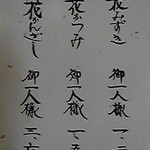 花みずき 御一人様 一、二
花かつみ 御一人様 一、五
花かんざし 御一人様 三、六